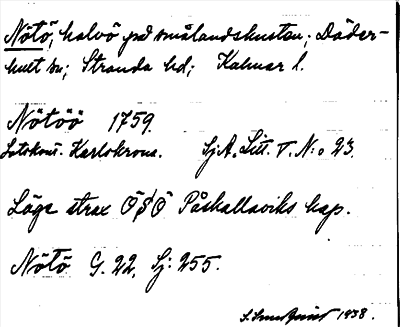 Nötö, halvö på smålandskusten; Döder-
hult sn; Stranda hd; Kalmar l.
Nötöö 1759.
Lotskont. Karlskrona. SjA. Litt. V. N:o 23.
Läge strax ÖSÖ Påskallaviks kap.
Nötö G. 22, Sj: 255.
1938.